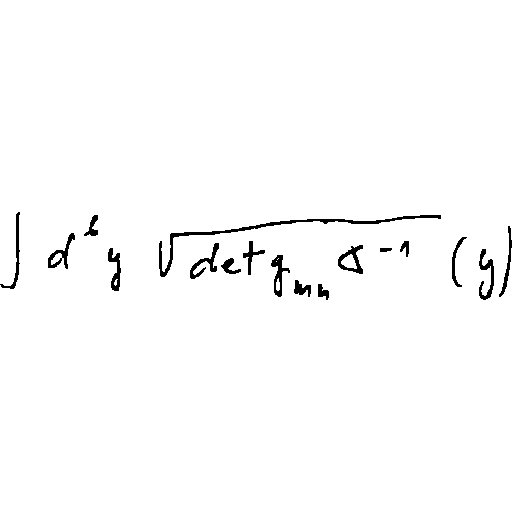 ∫ d^6 y √(det g_{mn} Δ^{-1}) (y)